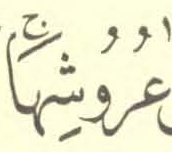 عُرُوشِهَاۚ